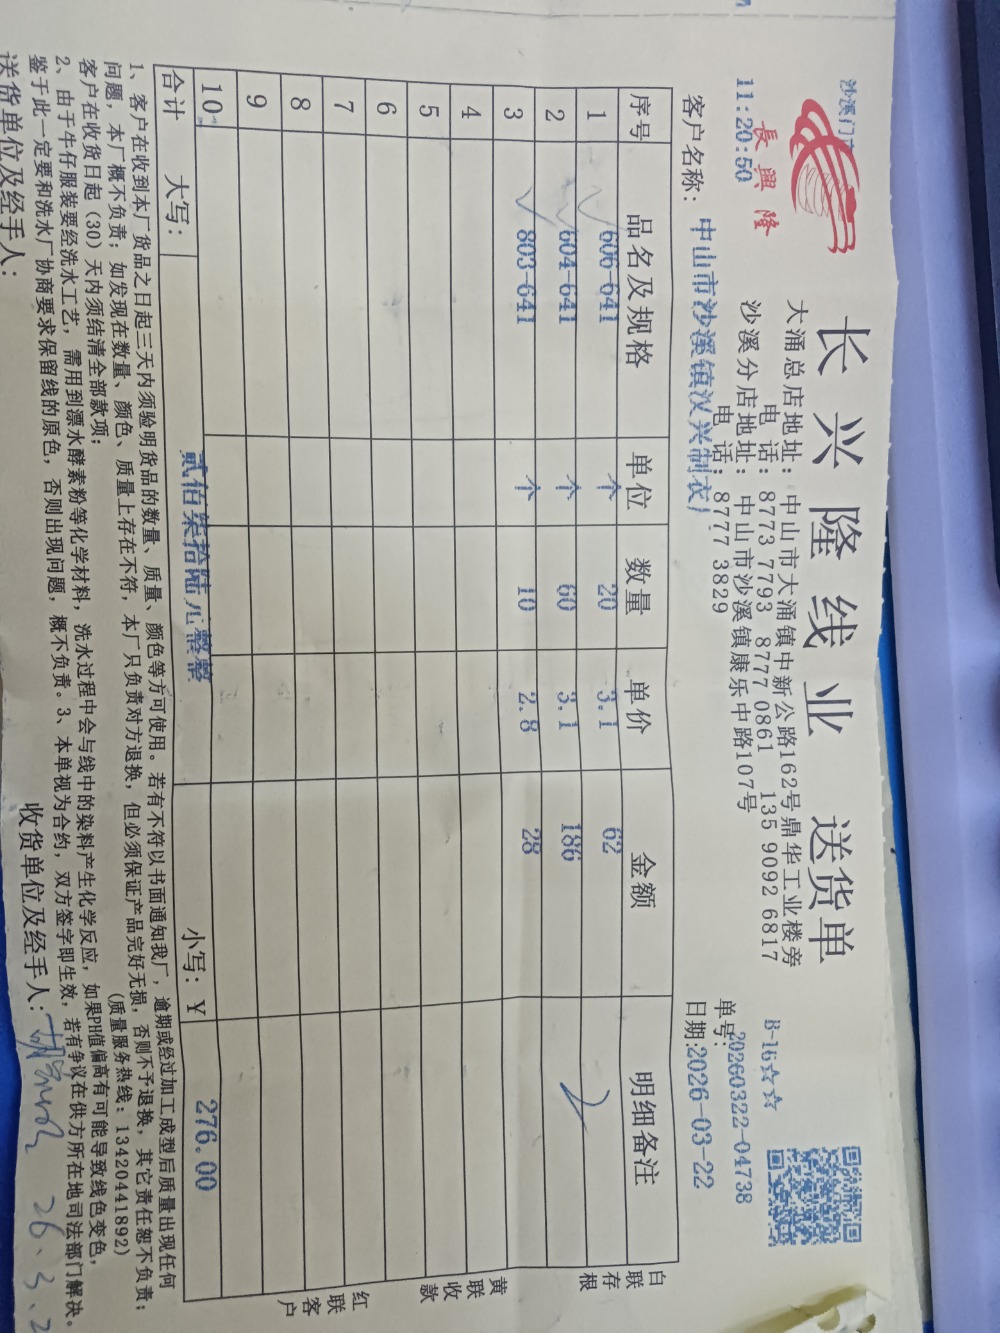 沙溪门
長興隆
11:20:50
长兴隆线业 送货单
大涌总店地址：中山市大涌镇中新公路162号鼎华工业楼旁
电 话：8773 7793 8777 0861 135 9092 6817
沙溪分店地址：中山市沙溪镇康乐中路107号
电 话：8777 3829
B-16☆☆
单号：20260322-04738
客户名称：中山市沙溪镇汉兴制衣厂
日期:2026-03-22
序号 品名及规格 单位 数量 单价 金额 明细备注
1 606-641 个 20 3.1 62
2 604-641 个 60 3.1 186
3 803-641 个 10 2.8 28
4
5
6
7
8
9
10
合计 大写： 贰佰柒拾陆元整整 小写：￥ 276.00
白联存根
黄联收款
红联客户
1、客户在收到本厂货品之日起三天内须验明货品的数量、质量、颜色等方可使用。若有不符以书面通知我厂，逾期或经过加工成型后质量出现任何
问题，本厂概不负责；如发现在数量、颜色、质量上存在不符，本厂只负责对方退换，但必须保证产品完好无损，否则不予退换，其它责任恕不负责；
客户在收货日起（30）天内须结清全部款项； (质量服务热线：13420441892)
2、由于牛仔服装要经洗水工艺，需用到漂水酵素粉等化学材料，洗水过程中会与线中的染料产生化学反应，如果PH值偏高有可能导致线色变色，
鉴于此一定要和洗水厂协商要求保留线的原色，否则出现问题，概不负责。3、本单视为合约，双方签字即生效，若有争议在供方所在地司法部门解决。
送货单位及经手人： 收货单位及经手人：
26.3.2